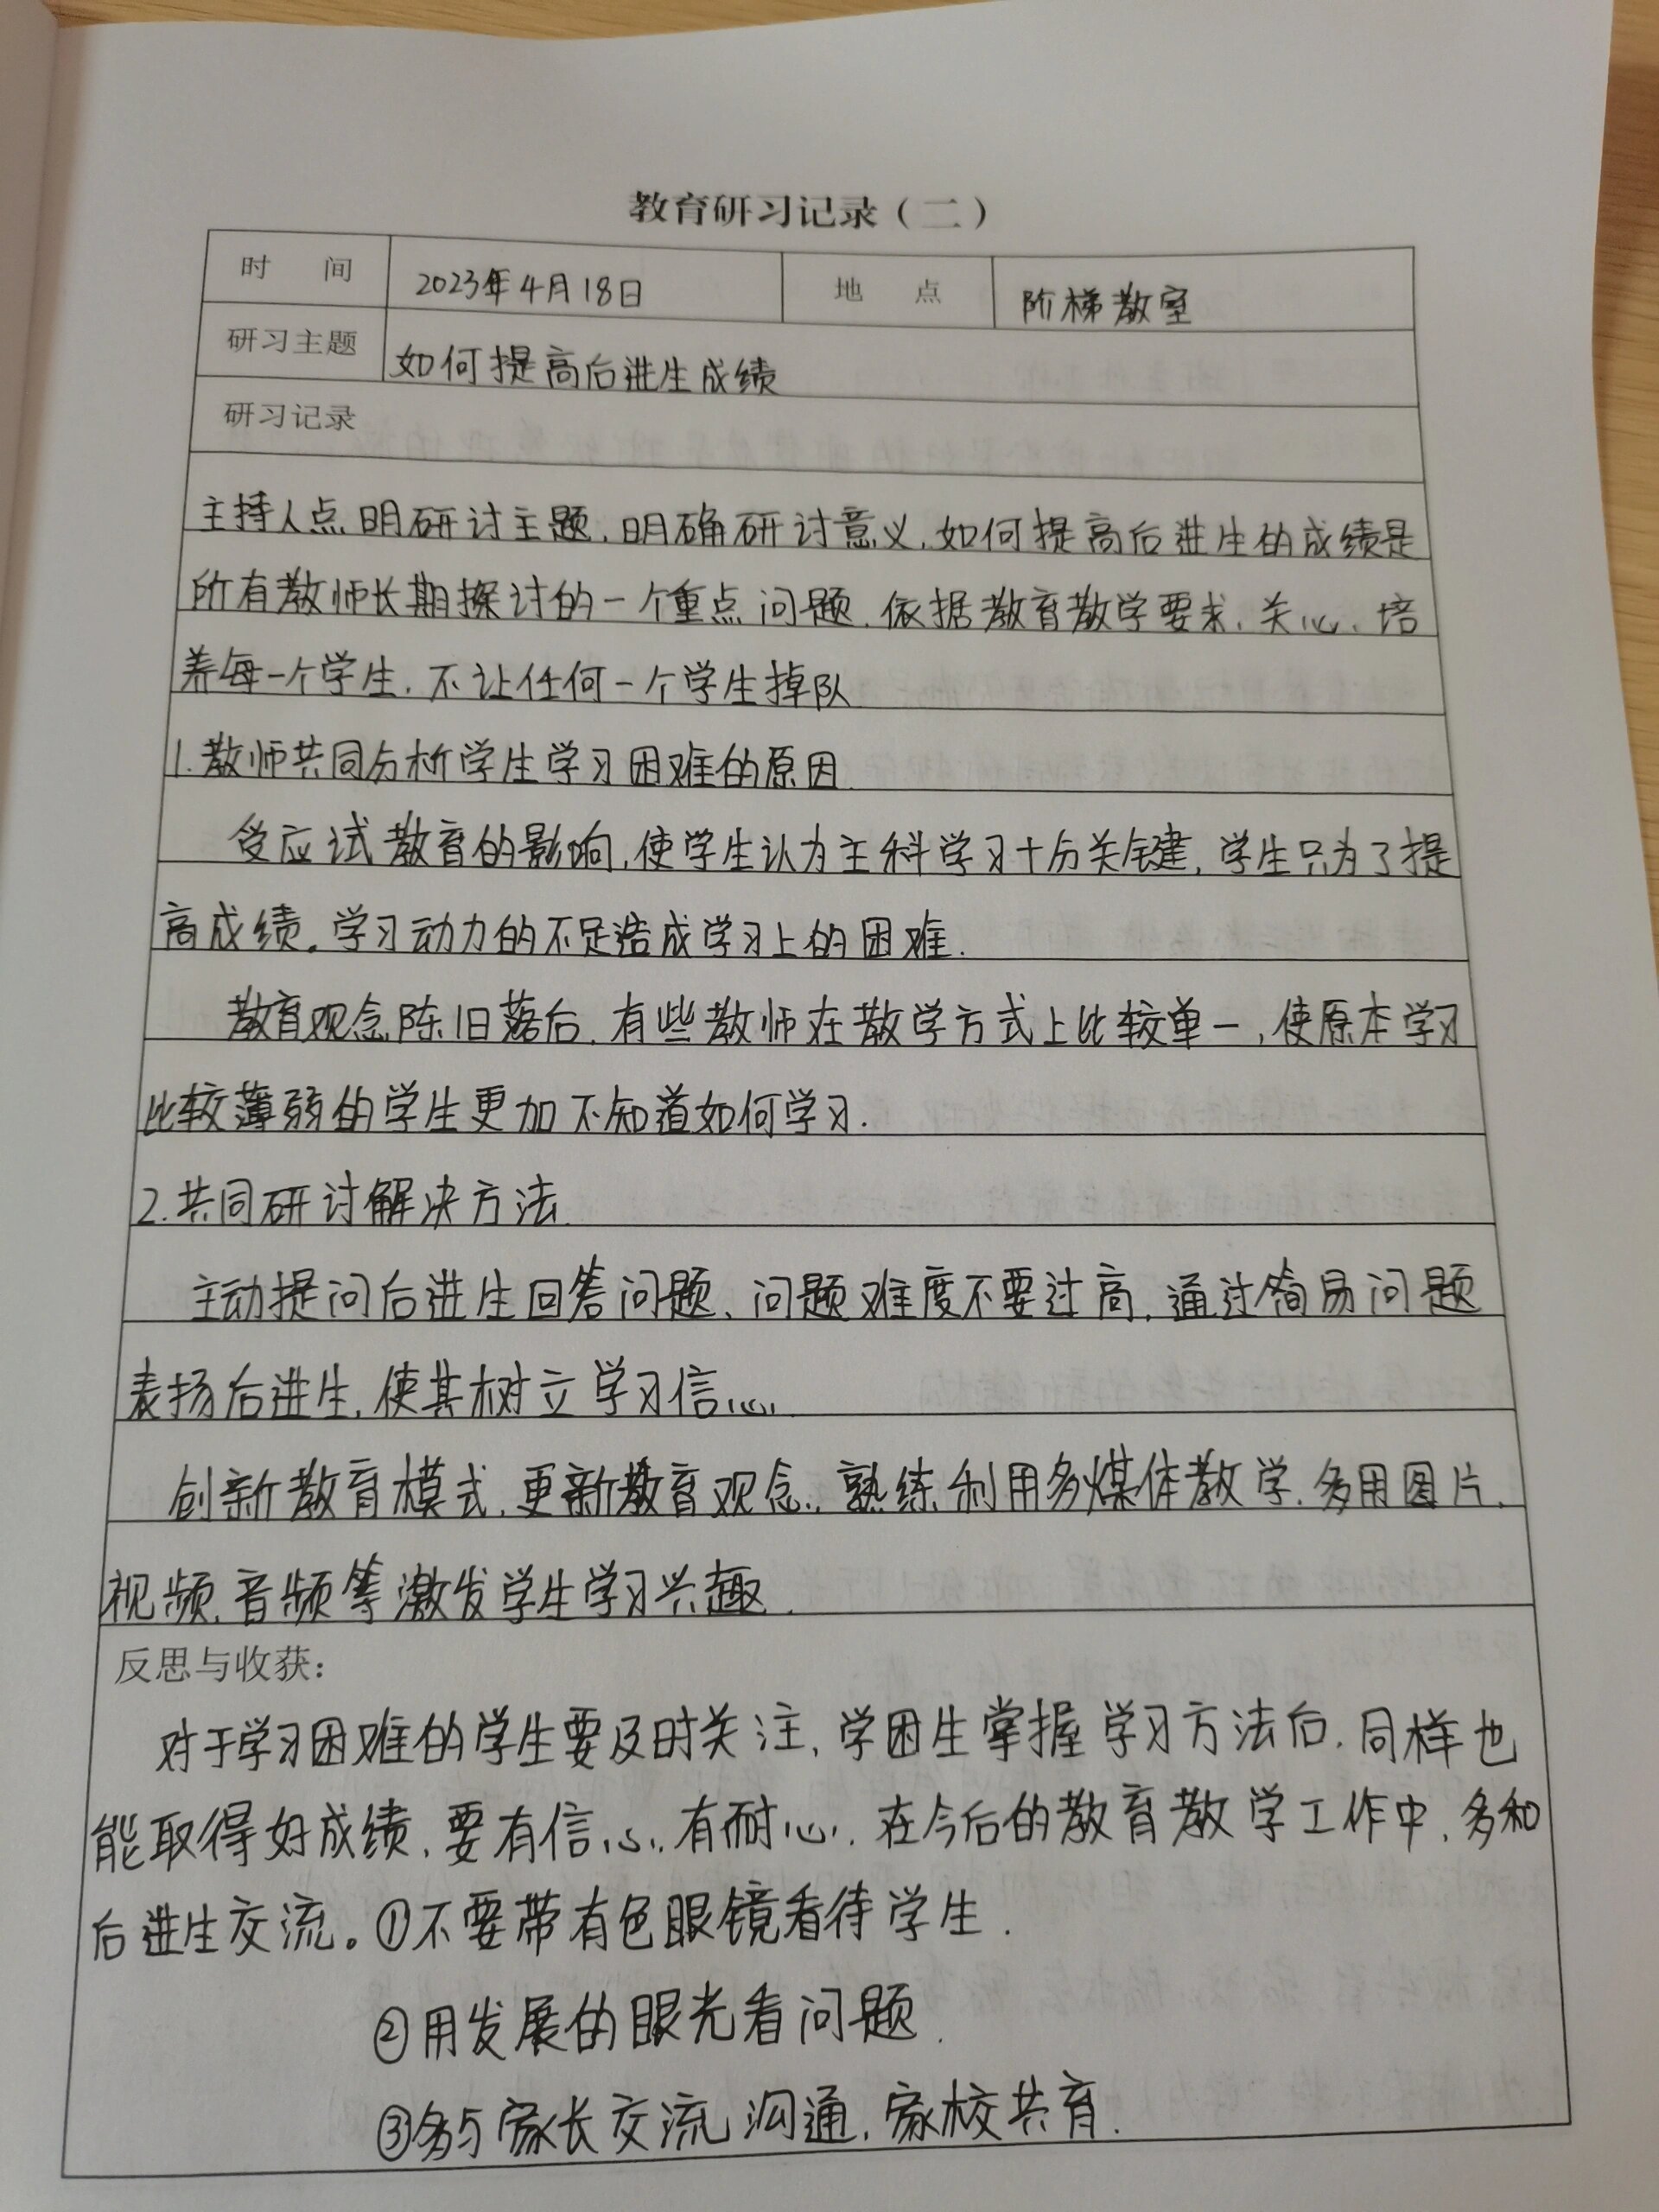 教育研习记录（二）
时 间 2023年4月18日 地 点 阶梯教室
研习主题 如何提高后进生成绩
研习记录
主持人点明研讨主题,明确研讨意义,如何提高后进生的成绩是
所有教师长期探讨的一个重点问题.依据教育教学要求、关心、培
养每一个学生,不让任何一个学生掉队
1.教师共同分析学生学习困难的原因.
受应试教育的影响,使学生认为主科学习十分关键,学生只为了提
高成绩。学习动力的不足造成学习上的困难.
教育观念陈旧落后.有些教师在教学方式上比较单一,使原本学习
比较薄弱的学生更加不知道如何学习.
2.共同研讨解决方法.
主动提问后进生回答问题、问题难度不要过高,通过简易问题
表扬后进生,使其树立学习信心.
创新教育模式,更新教育观念.熟练利用多媒体教学.多用图片、
视频、音频等激发学生学习兴趣.
反思与收获：
对于学习困难的学生要及时关注,学困生掌握学习方法后,同样也
能取得好成绩,要有信心,有耐心.在今后的教育教学工作中,多和
后进生交流。①不要带有色眼镜看待学生.
②用发展的眼光看问题.
③多与家长交流沟通,家校共育.